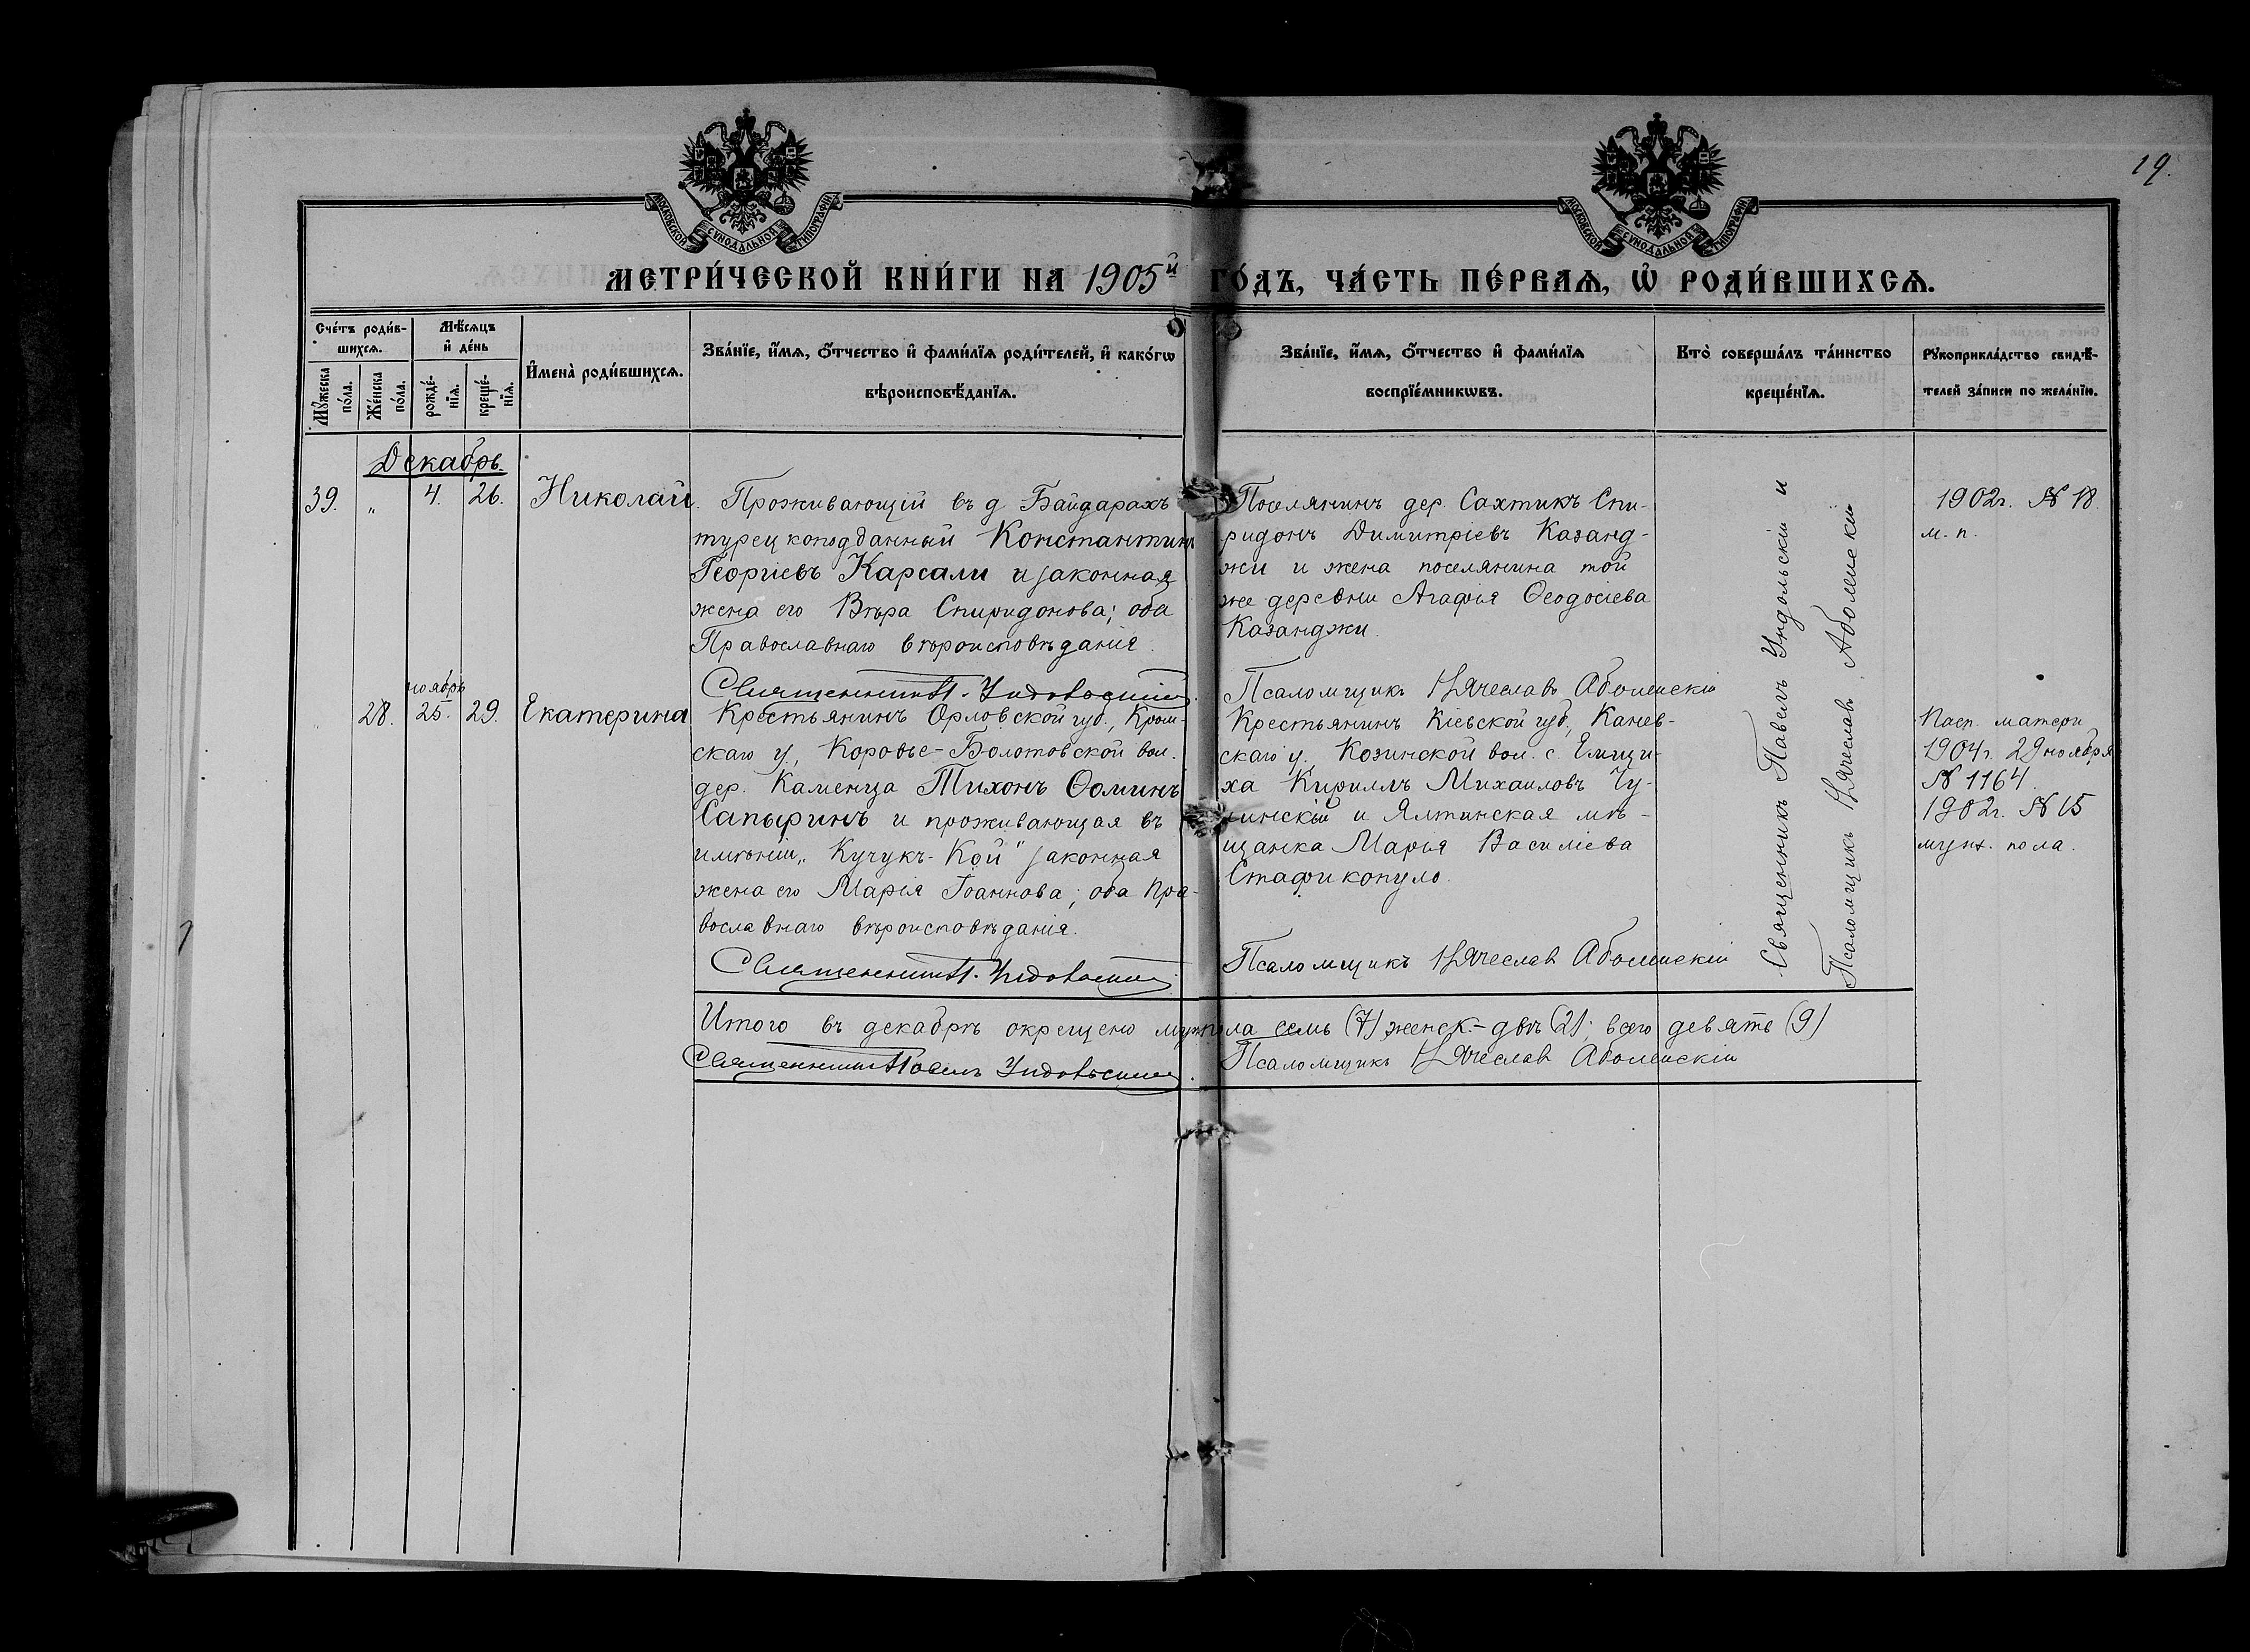 19.
МОСКОВСКОЙ СѴНОДАЛЬНОЙ ТИПОГРАФІИ
МОСКОВСКОЙ СѴНОДАЛЬНОЙ ТИПОГРАФІИ
МЕТРИ́ЧЕСКОЙ КНИ́ГИ НА 1905й ГО́ДЪ, ЧА́СТЬ ПЕ́РВАѦ, Ѡ҆ РОДИ́ВШИХСѦ.
Сче́тъ роди́в-
шихсѧ.
Мꙋ́жеска по́ла.
Же́нска по́ла.
Мѣ́сѧцъ
и҆ де́нь
рожде́-нїѧ.
креще́-нїѧ.
И҆мена̀ роди́вшихсѧ.
Зва́нїе, и҆́мѧ, ѻ҆́тчество и҆ фами́лїѧ роди́телей, и҆ како́гѡ
вѣроисповѣ́данїѧ.
Зва́нїе, и҆́мѧ, ѻ҆́тчество и҆ фами́лїѧ
воспрїе́мникѡвъ.
Кто̀ соверша́лъ та́инство
креще́нїѧ.
Рꙋкоприкла́дство свидѣ́-
телей за́писи по жела́нїю.
Декабрь
39. „ 4. 26. Николай.
Проживающій въ д Байдарахъ
турецкоподданный Константинъ
Георгіевъ Карсали и законная
жена его Вѣра Спиридонова; оба
Православнаго вѣроисповѣданія.
Священникъ П. Ундольскій.
Поселянинъ дер. Сахтикъ Спи-
ридонъ Димитріевъ Казанд-
жи и жена поселянина той
же деревни Агафія Ѳеодосіева
Казанджи.
Псаломщикъ Вячеславъ Аболенскій
1902г. № 18.
м. п.
28. ноябрь 25. 29. Екатерина
Крестьянинъ Орловской губ., Кром-
скаго у., Коровье-Болотовской вол.
дер. Каменца Тихонъ Ѳоминъ
Сапыринъ и проживающая въ
имѣніи „Кучукъ-Кой" законная
жена его Марія Іоаннова; оба Пра-
вославнаго вѣроисповѣданія.
Священникъ П. Ундольскій.
Крестьянинъ Кіевской губ., Канев-
скаго у., Козинской вол. с. Емчи-
ха Кириллъ Михаиловъ Чу-
и Ялтинская мѣ-
щанка Марья Василіева
Стафикопуло.
Псаломщикъ Вячеславъ Аболенскій
Священникъ Павелъ Ундольскій и
Псаломщикъ Вячеславъ Аболенскій
Пасп. матери
1904г. 29 ноября
№ 1164.
1902г. № 15
мужс. пола.
Итого въ декабрѣ окрещено муж. пола семь (7) женск. - двѣ (2); всего девять (9)
Священникъ Павелъ Ундольскій.
Псаломщикъ Вячеславъ Аболенскій